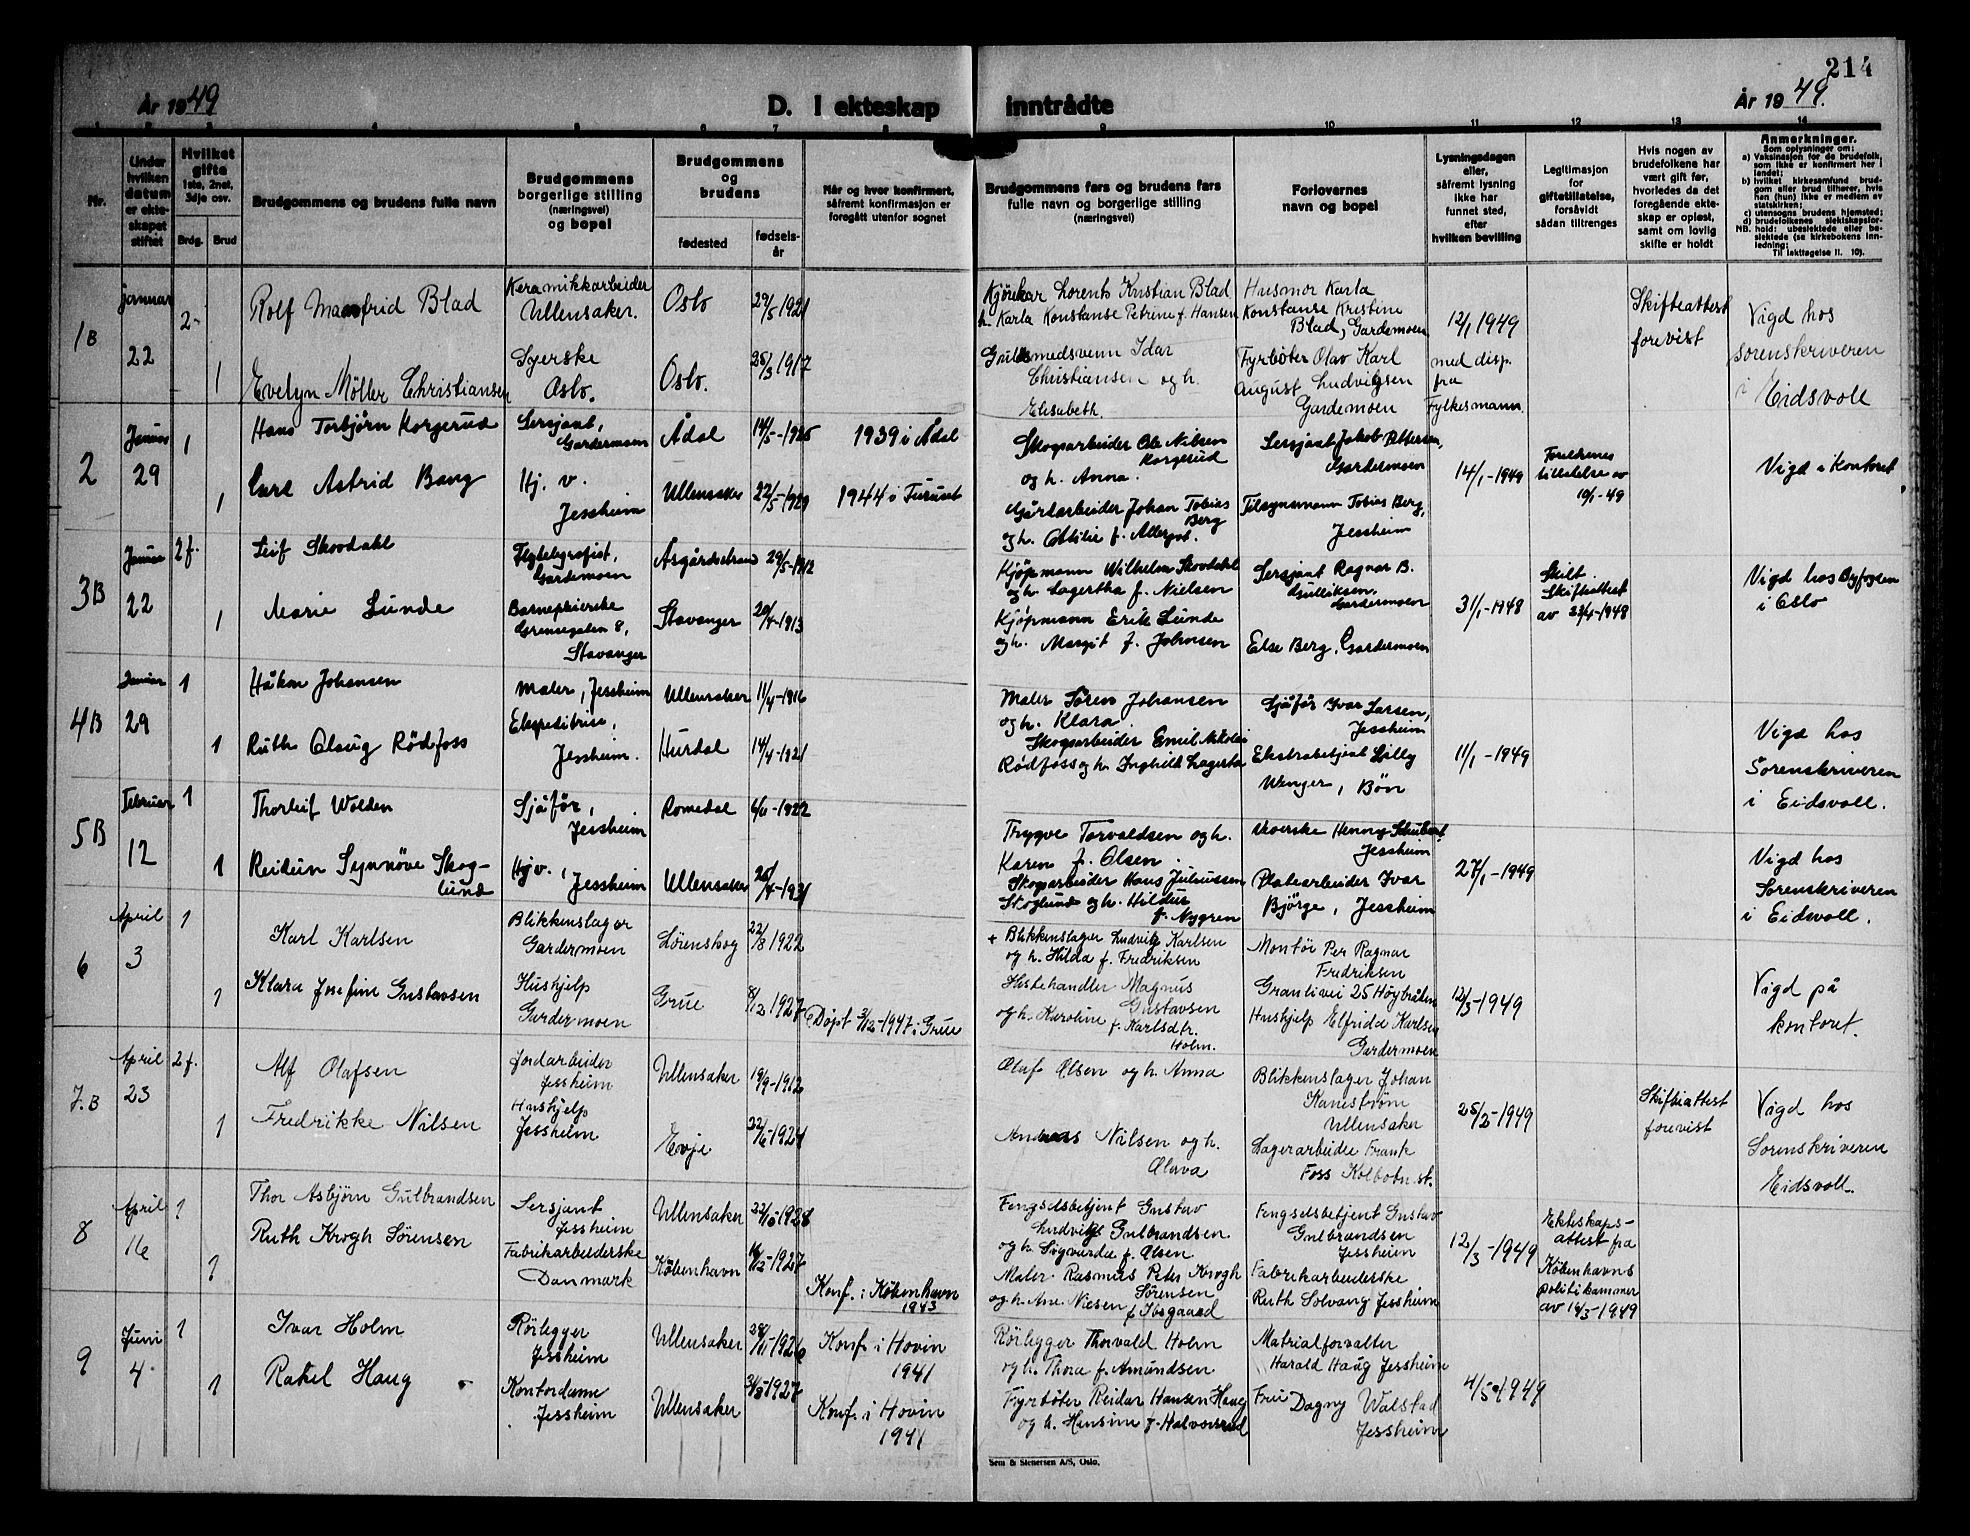 214
År 1949
D. I ekteskap inntrådte
År 1949.
1 2 3 4 5 6 7 8 9 10 11 12 13 14
Nr.
Under hvilken datum er ekteskapet stiftet
Hvilket gifte
1ste, 2net, 3dje osv.
Brdg. Brud
Brudgommens og brudens fulle navn
Brudgommens borgerlige stilling (næringsvei) og bopel
Brudgommens og brudens
fødested
fødselsår
Når og hvor konfirmert, såfremt konfirmasjon er foregått utenfor sognet
Brudgommens fars og brudens fars fulle navn og borgerlige stilling (næringsvei)
Forlovernes navn og bopel
Lysningsdagen eller, såfremt lysning ikke har funnet sted, efter hvilken bevilling
Legitimasjon for giftetillatelse, forsåvidt sådan tiltrenges
Hvis nogen av brudefolkene har vært gift før, hvorledes da det foregående ekteskap er opløst, samt om lovlig skifte er holdt
Anmerkninger.
Som oplysninger om:
a) Vaksinasjon for de brudefolk, som ikke er konfirmert her i landet;
b) hvilket kirkesamfund brudgom eller brud tilhører, hvis han (hun) ikke er medlem av statskirken;
c) utensogns brudens hjemsted;
d) brudefolkenes slektskapsforhold: ubeslektede eller beslektede (se kirkebokens innledning;
NB.
Til iakttagelse II. 10).
1B
januar
22
2-
1
Rolf Manfrid Blad
Evelyn Möller Christiansen
Keramikkarbeider
Ullensaker.
Syerske
Oslo.
Oslo
Oslo.
29/5 1921
25/3 1917
Kjörekar Lorents Kristian Blad
h. Karla Konstanse Petrine f. Hansen
Gullsmedsvenn Idar
Christiansen og h.
Elisabeth.
Husmor Karla
Konstanse Kristine
Blad, Gardemoen
Fyrböter Olav Karl
August Ludvigsen
Gardemoen
12/1 1949
med disp.
fra
Fylkesmann.
Skifteattest
forevist
Vigd hos
sorenskriveren
i Eidsvoll
2
Januar
29
1
1
Hans Torbjörn Korgerud
Astrid Bang
Sersjant,
Gardermoen
Hj. v.
Jessheim
Ådal
Ullensaker
14/5-1925
22/5-1929
1939 i Ådal
1944 i Furuset
Skogsarbeider Ole Nilsen
Korgerud
og h. Anna.
Gårdarbeider Johan Tobias
Berg
og h. Ottilie f.
Sersjant Jakob Pettersen,
Gardermoen
Tilsynsmann Tobias Berg,
Jessheim
14/1-1949
Foreldrenes
tillatelse av
10/1-49
Vigd i kontoret
3B
Januar
22
2 f.
1
Leif Skovdahl
Marie Lunde
Flytelegrafist,
Gardemoen
Barnepleierske
Grensegaten 8,
Stavanger
Åsgårdstrand
Stavanger
29/5-1912
20/4-1913
Kjøpmann Wilhelm Skovdahl
og h. Lagertha f. Nielsen
Kjøpmann Erik Lunde
og h. Margit f. Johnsen
Sersjant Ragnar B.
Gulliksen,
Gardermoen
Else Berg, Gardermoen
31/1-1948
Skilt
Skifteattest
av 22/4-1948
Vigd hos Byfogden
i Oslo
4B
Januar
29
1
1
Håkon Johansen
Ruth Olaug Rödfoss
Maler, Jessheim
Ekspeditrise,
Jessheim.
Ullensaker
Hurdal
11/4-1916
14/4-1921
Maler Sören Johansen
og h. Klara
Skogsarbeider Emil Nikolai
Rödfoss og h. Inghild Lagerta
Sjåfør Ivar Larsen,
Jessheim
Ekstrabetjent Lilly
Wenger, Bön
11/1-1949
Vigd hos
Sorenskriveren
i Eidsvoll.
5B
Februar
12
1
1
Thorleif Wolden
Reidun Synnöve Skog-
lund
Sjåför,
Jessheim
Hj v.,
Jessheim
Romedal
Ullensaker
6/11-1922
26/4-1931
Trygve Torvaldsen og h.
Karen f. Olsen.
Skogsarbeider Hans Juliussen
Skoglund og h. Hildur
f. Nygren
Henny Schubert
Jessheim
Platearbeider Ivar
Björge, Jessheim
27/1-1949
Vigd hos
Sorenskriveren
i Eidsvoll.
6
April
3
1
1
Karl Karlsen
Klara Josefine Gustavsen
Blikkenslager
Gardermoen
Hushjelp
Gardermoen
Lørenskog
Grue
22/8 1922
8/12 1927
Döpt 3/12-1947 i Grue
+ Blikkenslager Ludvig Karlsen
og h. Hilda f. Fredriksen
Hestehandler Magnus
Gustavsen
og h. Karoline f. Karlsdtr.
Holm.
Montör Per Ragnar
Fredriksen
Granlivei 25 Höybråten
Hushjelp Elfrida Karlsen
Gardermoen
12/3-1949
Vigd på
kontoret.
7.B
April
23
2 f.
1
Alf Olafsen
Fredrikke Nilsen
Jordarbeider
Jessheim
Hushjelp
Jessheim
Ullensaker
Evje
19/9-1912
22/6-1921
Olaf Olsen og h. Anna
Andreas Nilsen og h.
Olava
Blikkenslager Johan
Kaneström
Ullensaker
Lagerarbeider Frank
Foss Kolbotn st.
25/2-1949
Skifteattest
forevist
Vigd hos
Sorenskriveren
Eidsvoll.
8
April
16
1
1
Thor Asbjörn Gulbrandsen
Ruth Krogh Sörensen
Sersjant
Jessheim
Fabrikarbeiderske
Danmark
Ullensaker
København
22/10-1928
16/12-1927
Konf. i København
1943
Fengselsbetjent Gustav
Ludvig Gulbrandsen
og h. Sigvarda f. Olsen
Maler Rasmus Peter Krogh
Sörensen
og h. Ane Niesen f. Ibsgaard
Fengselsbetjent Gustav
Gulbrandsen
Jessheim
Fabrikarbeiderske
Ruth Solvang Jessheim
12/3-1949
Ekteskaps-
attest fra
Københavns
politikammer
av 14/3-1949
9
Juni
4
1
1
Ivar Holm
Rakel Haug
Rörlegger
Jessheim
Kontordame
Jessheim
Ullensaker
Ullensaker
28/11-1926
31/3-1927
Konf. i Hovin
1941
Konf. i Hovin
1941
Rörlegger Thorvald Holm
og h. Thora f. Amundsen
Fyrböter Reidar Hansen Haug
og h. Hansine f. Halvorsrud
Matrialforvalter
Harald Haug Jessheim
Frue Dagny Walstad
Jessheim
4/5-1949
Sem & Stenersen A/S, Oslo.